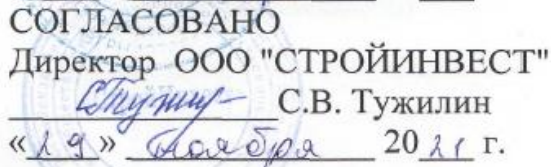 СОГЛАСОВАНО
Директор ООО "СТРОЙИНВЕСТ"
С.В. Тужилин
«19» ноября 2021 г.